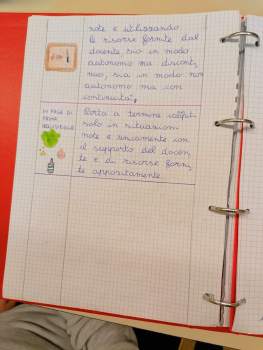 note e utilizzando
le risorse fornite dal
docente, sia in modo
autonomo ma discont,
nuo, sia in modo non
autonomo ma con
continuità.
IN FASE DI
PRIMA
Porta a termine compiti
solo in situazioni
note e unicamente con
il supporto del docen
te e di risorse forni
te appositamente.